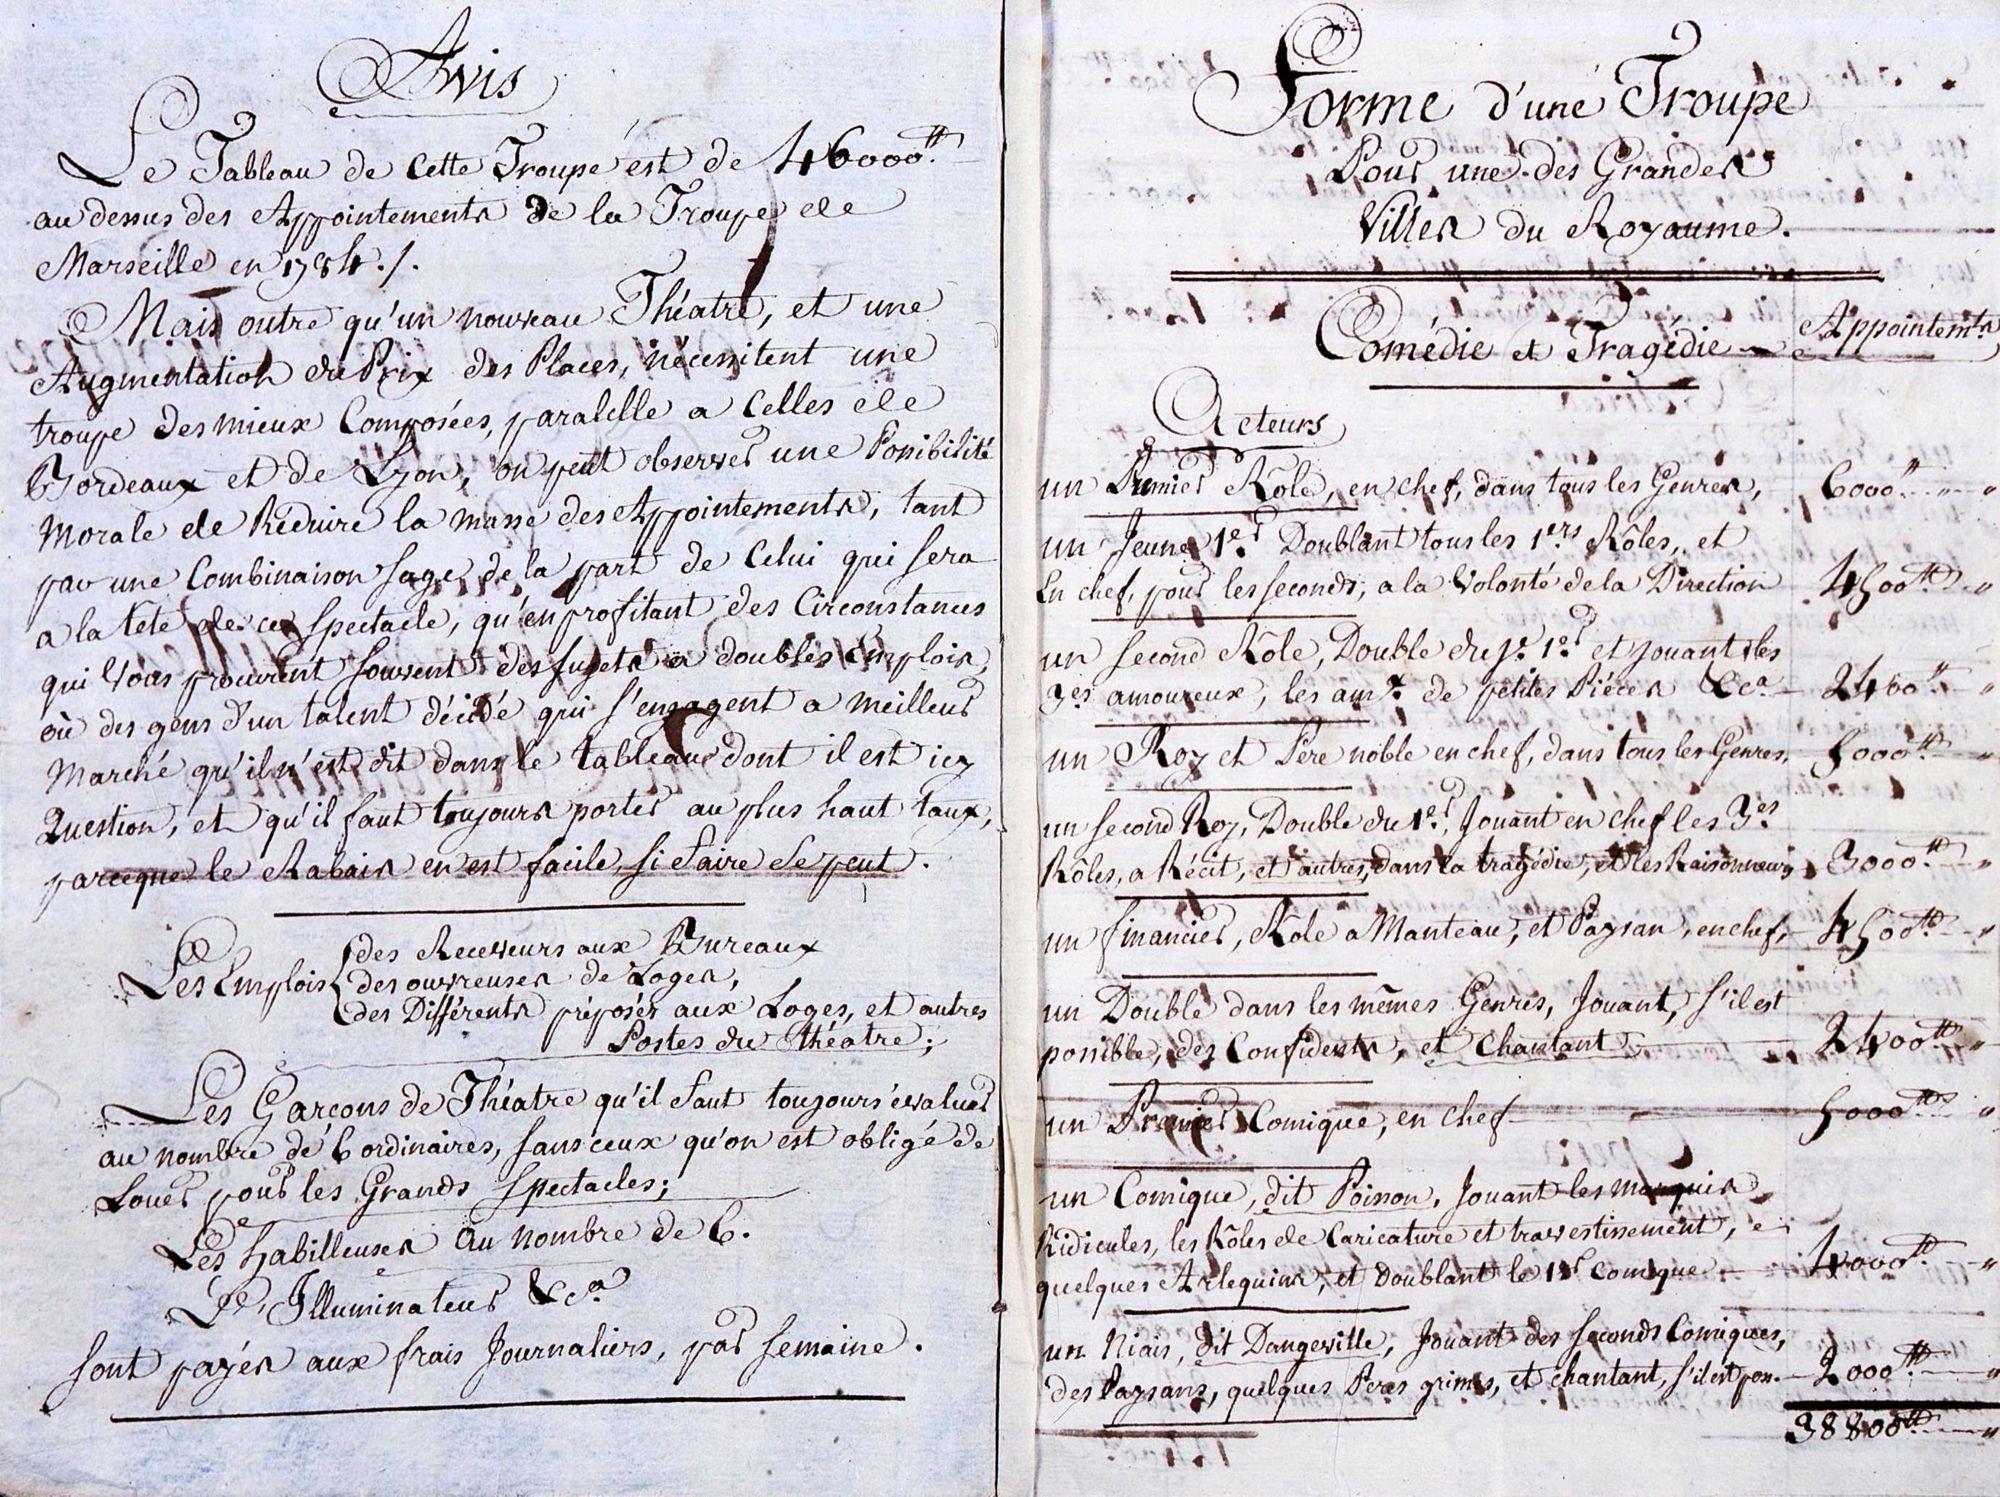 Avis
Le Tableau de cette Troupe est de 46000.tt
au dessus des Appointements de la Troupe de
Marseille en 1784./.
Mais outre qu'un nouveau Théatre, et une
Augmentation du Prix des Places, nécessitent une
troupe des mieux Composées, paralelle a celles de
Bordeaux et de Lyon, on peut observer une Possibilité
Morale de Réduire la masse des Appointements, tant
par une Combinaison sage de la part de Celui qui sera
a la tête de ce Spectacle, qu'en profitant des Circonstances
qui Vous procurent souvent des sujets a doubles Emplois,
où des gens d'un talent décidé qui s'engagent a meilleur
Marché qu'il n'est dit dans le tableau dont il est icy
Question, et qu'il faut toujours porter au plus haut taux,
parceque le Rabais en est facile, si faire se peut.
Les Emplois { des Receveurs aux Bureaux
des ouvreuses de Loges,
des Différents préposés aux Loges, et autres
Postes du théatre;
Les Garçons de Théatre qu'il faut toujours évaluer
au nombre de 6 ordinaires, sans ceux qu'on est obligé de
Louer pour les Grands Spectacles;
Les habilleuses au nombre de 6.
Illuminateur &c.a
sont payés aux frais Journaliers, par semaine.
Forme d'une Troupe
Pour une des Grandes
Villes du Royaume.
Comédie et Tragédie Appointemts
Acteurs
un Premier Rôle, en chef, dans tous les Genres, 6000.tt "
un Jeune 1er Doublant tous les 1ers Rôles, et
En chef, pour les seconds, a la Volonté de la Direction 4500.tt "
un second Rôle, Double du Je 1er et jouant les
3es amoureux, les amx de petites Piéces &ca 2400.tt "
un Roy et Pere noble en chef, dans tous les Genres, 5000.tt "
un second Roy, Double du 1er, Jouant en chef les 3es
Rôles, a Récit, et autres, dans la tragédie, et les Raisonneurs 3000.tt "
un financier, Rôle a Manteau, et Paysan, en chef, 4500.tt "
un Double dans les mêmes Genres, Jouant, s'il est
possible, des Confidents, et Chantant 2400.tt "
un Premier Comique, en chef 5000.tt "
un Comique, dit Poisson, Jouant les marquis
Ridicules, les Rôles de Caricature et travestissement, e
quelques Arlequins, et Doublant le 1er Comique 4000.tt "
un Niais, dit Dangeville, Jouant des seconds Comiques,
des Paysans, quelques Peres grimes, et chantant, s'il est pos. 2000.tt "
38800.tt "